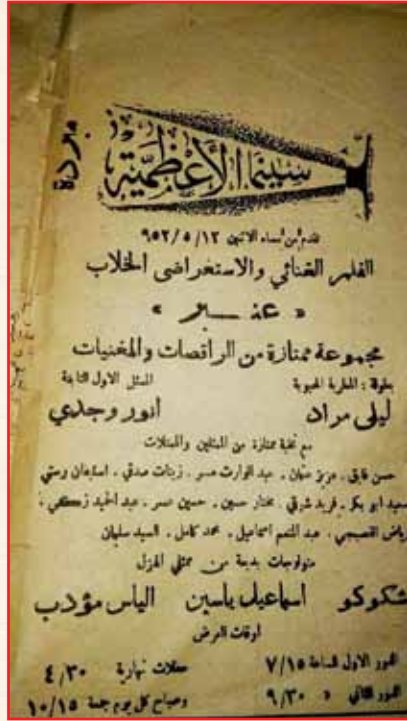 مبردة
سينما الأعظمية
تقدم من مساء الاثنين ١٢/٥/٩٥٢
الفلم الغنائي والاستعراضي الخلاب
« عنبر »
مجموعة ممتازة من الراقصات والمغنيات
بطولة : المطربة المحبوبة
الممثل الاول النابغة
ليلى مراد
انور وجدي
مع نخبة ممتازة من الممثلين والممثلات
حسن فايق . عزيز عثمان . عبد الوارث عسر . زينات صدقي . استيفان روستي
سعيد ابو بكر . فريد شوقي . مختار حسين . حسين عسر . عبد الحميد زكي .
رياض القصبجي . عبد المنعم اسماعيل . محمد كامل . السيد سليمان
منولوجات بديعة من ممثلي الهزل
شكوكو اسماعيل ياسين الياس مؤدب
اوقات العرض
الدور الاول الساعة ٧/١٥
حفلات نهارية ٤/٣٠
الدور الثاني » ٩/٣٠
وصباح كل يوم جمعة ١٠/١٥